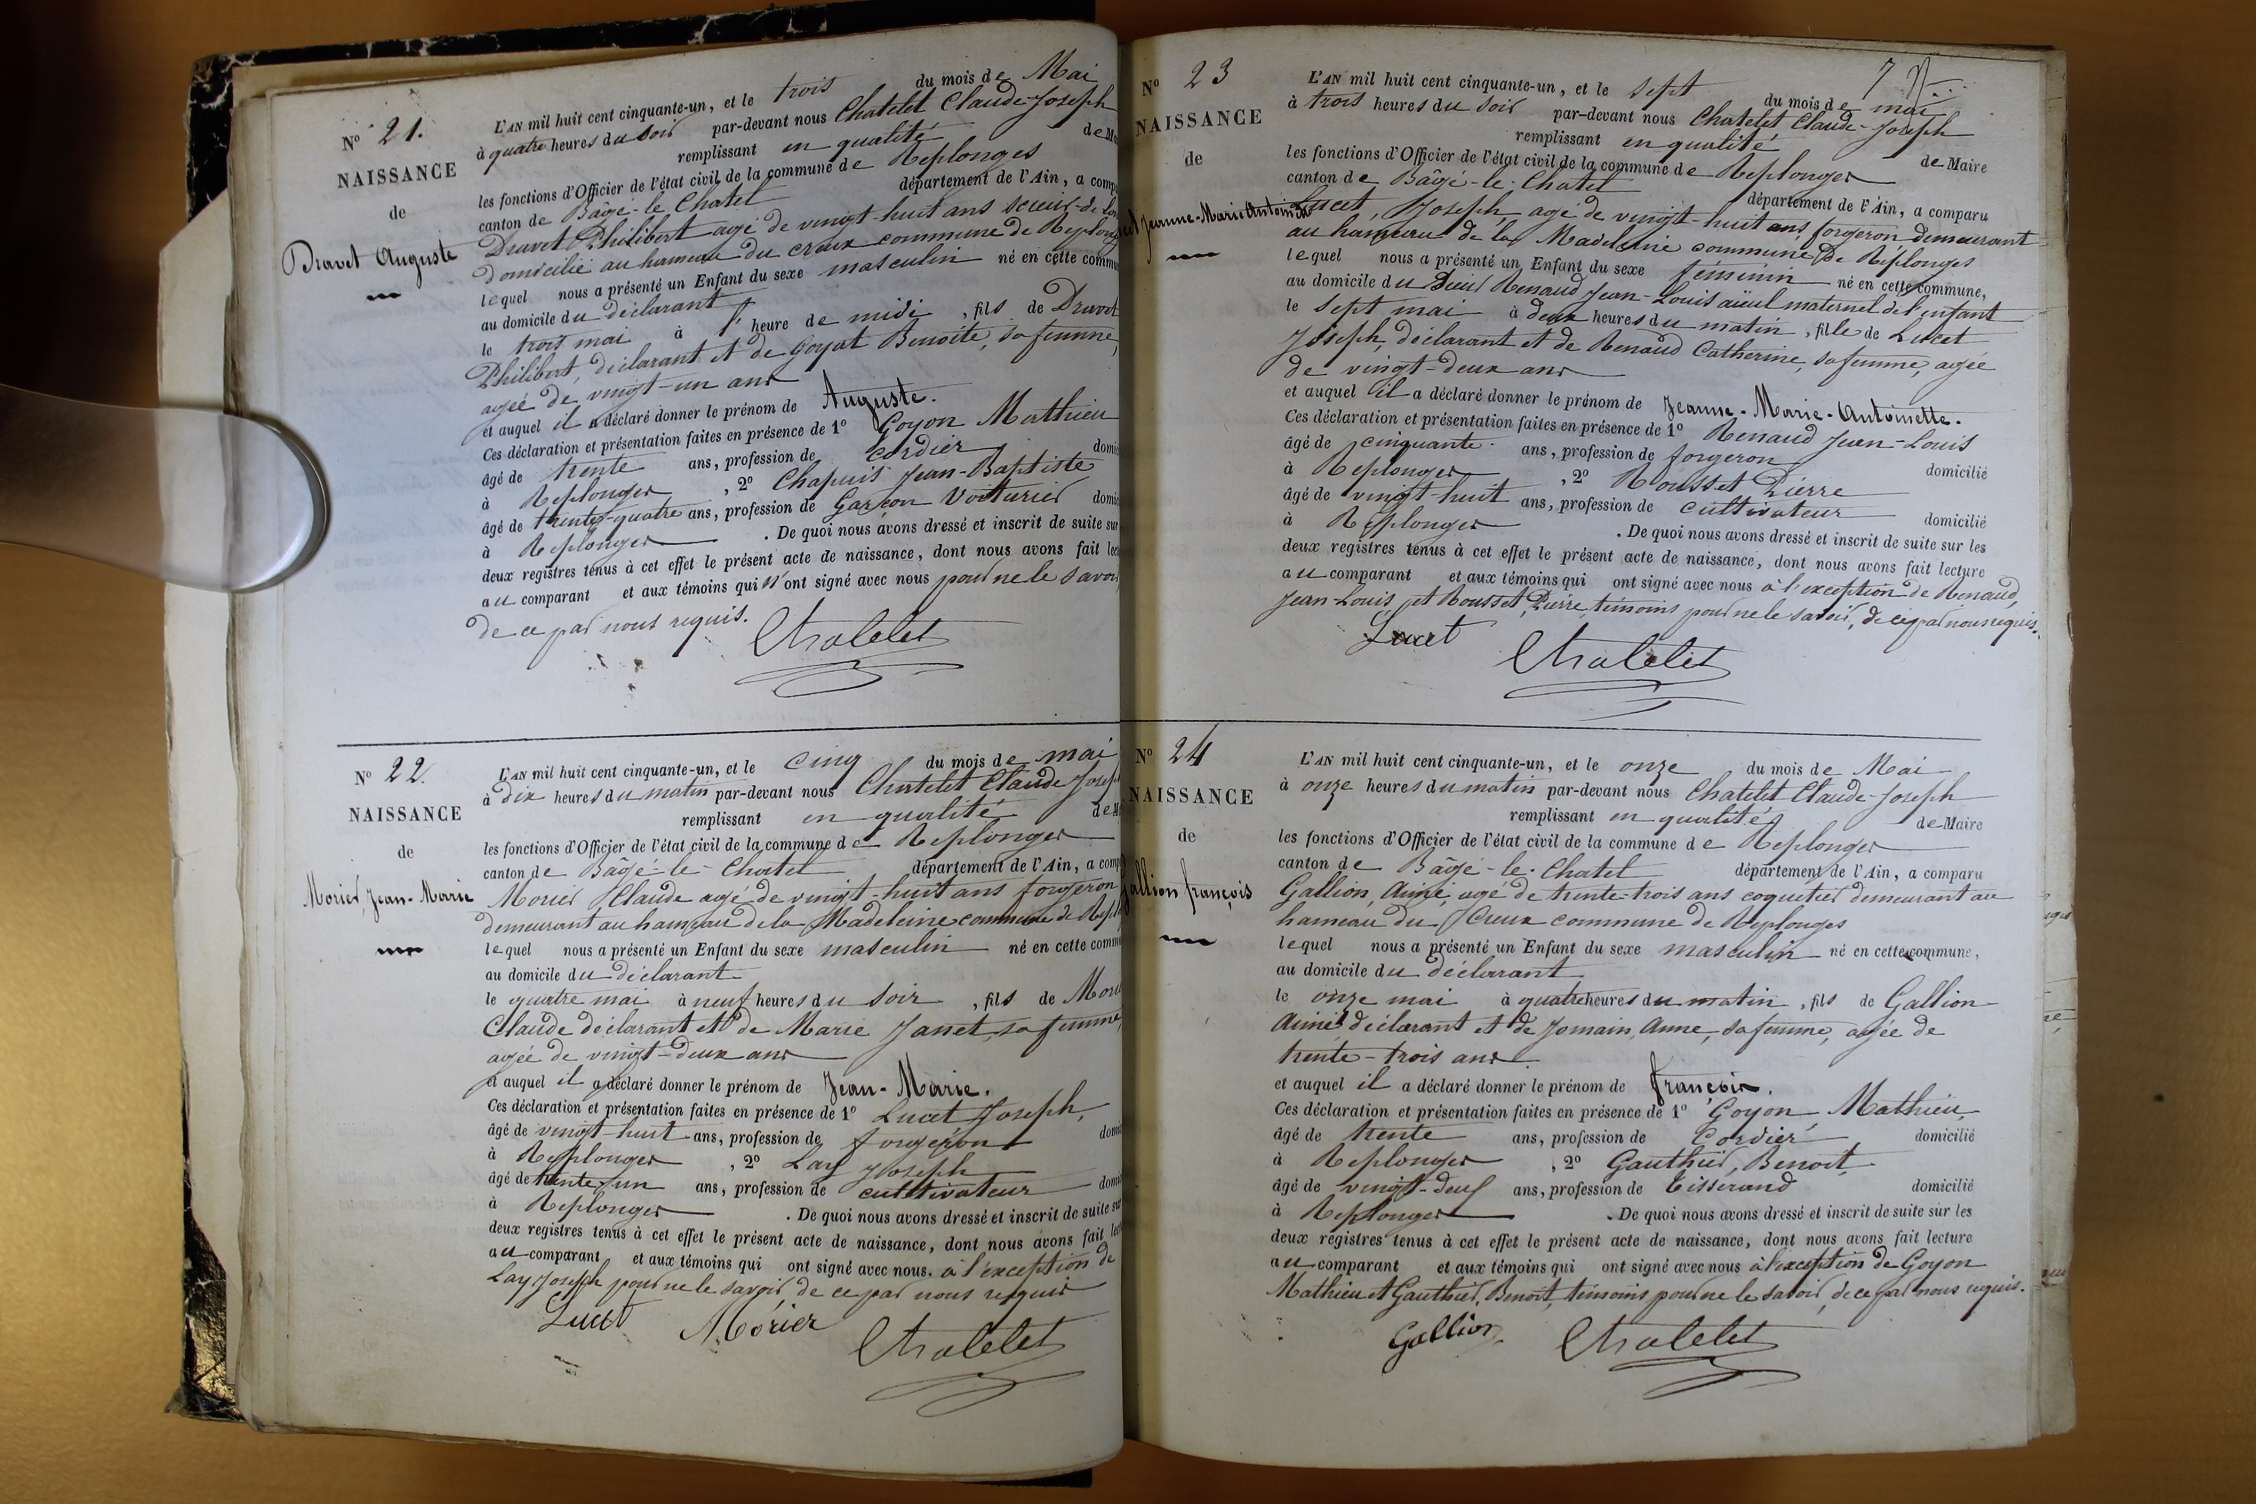 N° 21.
NAISSANCE
de
Dravet Auguste
L'AN mil huit cent cinquante-un, et le trois du mois de Mai
à quatre heures du soir par-devant nous Chatelet Claude-Joseph
remplissant en qualité de M
les fonctions d'Officier de l'état civil de la commune de Replonges
canton de Bâgé-le-Chatel département de l'Ain, a comp
Dravet Philibert agé de vingt-huit ans scieur-de-lon
domicilié au hameau du creux commune de Replong
lequel nous a présenté un Enfant du sexe masculin né en cette commu
au domicile du déclarant
le trois mai à 1 heure de midi, fils de Dravet
Philibert, déclarant et de Goyat Benoîte, sa femme,
agée de vingt-un ans
et auquel il a déclaré donner le prénom de Auguste.
Ces déclaration et présentation faites en présence de 1° Goyon Mathieu
âgé de trente ans, profession de cordier domic
à Replonges, 2° Chapuis Jean-Baptiste
âgé de trente-quatre ans, profession de Garçon Voiturier domic
à Replonges. De quoi nous avons dressé et inscrit de suite sur
deux registres tenus à cet effet le présent acte de naissance, dont nous avons fait lec
au comparant et aux témoins qui n'ont signé avec nous pour ne le savoir
de ce par nous requis.
Chatelet
N° 22.
NAISSANCE
de
Morier, Jean-Marie
L'AN mil huit cent cinquante-un, et le cinq du mois de mai
à dix heures du matin par-devant nous Chatelet Claude Josep
remplissant en qualité de M
les fonctions d'Officier de l'état civil de la commune de Replonges
canton de Bâgé-le-Chatel département de l'Ain, a comp
Morier Claude agé de vingt-huit ans forgeron
demeurant au hameau de la Madeleine commune de Repl
lequel nous a présenté un Enfant du sexe masculin né en cette commu
au domicile du déclarant
le quatre mai à neuf heures du soir, fils de Mori
Claude déclarant et de Marie Janet, sa femme,
agée de vingt-deux ans
et auquel il a déclaré donner le prénom de Jean-Marie.
Ces déclaration et présentation faites en présence de 1° Lucet Joseph,
âgé de vingt-huit ans, profession de forgeron domic
à Replonges, 2° Lay Joseph
âgé de trente-un ans, profession de cultivateur domic
à Replonges. De quoi nous avons dressé et inscrit de suite sur
deux registres tenus à cet effet le présent acte de naissance, dont nous avons fait lect
au comparant et aux témoins qui ont signé avec nous. à l'exception de
Lay Joseph pour ne le savoir, de ce par nous requis
Lucet Morier Chatelet
7
N° 23
NAISSANCE
de
et Jeanne-Marie Antoinette
L'AN mil huit cent cinquante-un, et le sept du mois de mai
à trois heures du soir par-devant nous Chatelet Claude-Joseph
remplissant en qualité de Maire
les fonctions d'Officier de l'état civil de la commune de Replonges
canton de Bâgé-le-Chatel département de l'Ain, a comparu
Lucet, Joseph, agé de vingt-huit ans, forgeron demeurant
au hameau de la Madeleine commune de Replonges
lequel nous a présenté un Enfant du sexe féminin né en cette commune,
au domicile du Sieur Renaud Jean-Louis aïeul maternel de l'enfant
le sept mai à deux heures du matin, fille de Lucet
Joseph, déclarant et de Renaud Catherine, sa femme, agée
de vingt-deux ans
et auquel il a déclaré donner le prénom de Jeanne-Marie-Antoinette.
Ces déclaration et présentation faites en présence de 1° Renaud Jean-Louis
âgé de cinquante ans, profession de forgeron domicilié
à Replonges, 2° Rousset Pierre
âgé de vingt-huit ans, profession de cultivateur domicilié
à Replonges. De quoi nous avons dressé et inscrit de suite sur les
deux registres tenus à cet effet le présent acte de naissance, dont nous avons fait lecture
au comparant et aux témoins qui ont signé avec nous à l'exception de Renaud,
Jean-Louis, et Rousset, Pierre, témoins pour ne le savoir, de ce par nous requis.
Lucet Chatelet
N° 24
NAISSANCE
de
Gallion françois
L'AN mil huit cent cinquante-un, et le onze du mois de Mai
à onze heures du matin par-devant nous Chatelet Claude-Joseph
remplissant en qualité de Maire
les fonctions d'Officier de l'état civil de la commune de Replonges
canton de Bâgé-le-Chatel département de l'Ain, a comparu
Gallion, Aimé, agé de trente-trois ans coquetier demeurant au
hameau du Creux commune de Replonges
lequel nous a présenté un Enfant du sexe masculin né en cette commune,
au domicile du déclarant
le onze mai à quatre heures du matin, fils de Gallion
Aimé déclarant et de Jomain, Anne, sa femme, agée de
trente-trois ans
et auquel il a déclaré donner le prénom de françois.
Ces déclaration et présentation faites en présence de 1° Goyon Mathieu
âgé de trente ans, profession de Cordier domicilié
à Replonges, 2° Gauthier, Benoit
âgé de vingt-deux ans, profession de tisserand domicilié
à Replonges. De quoi nous avons dressé et inscrit de suite sur les
deux registres tenus à cet effet le présent acte de naissance, dont nous avons fait lecture
au comparant et aux témoins qui ont signé avec nous à l'exception de Goyon
Mathieu et Gauthier, Benoit, témoins pour ne le savoir, de ce par nous requis.
Gallion Chatelet